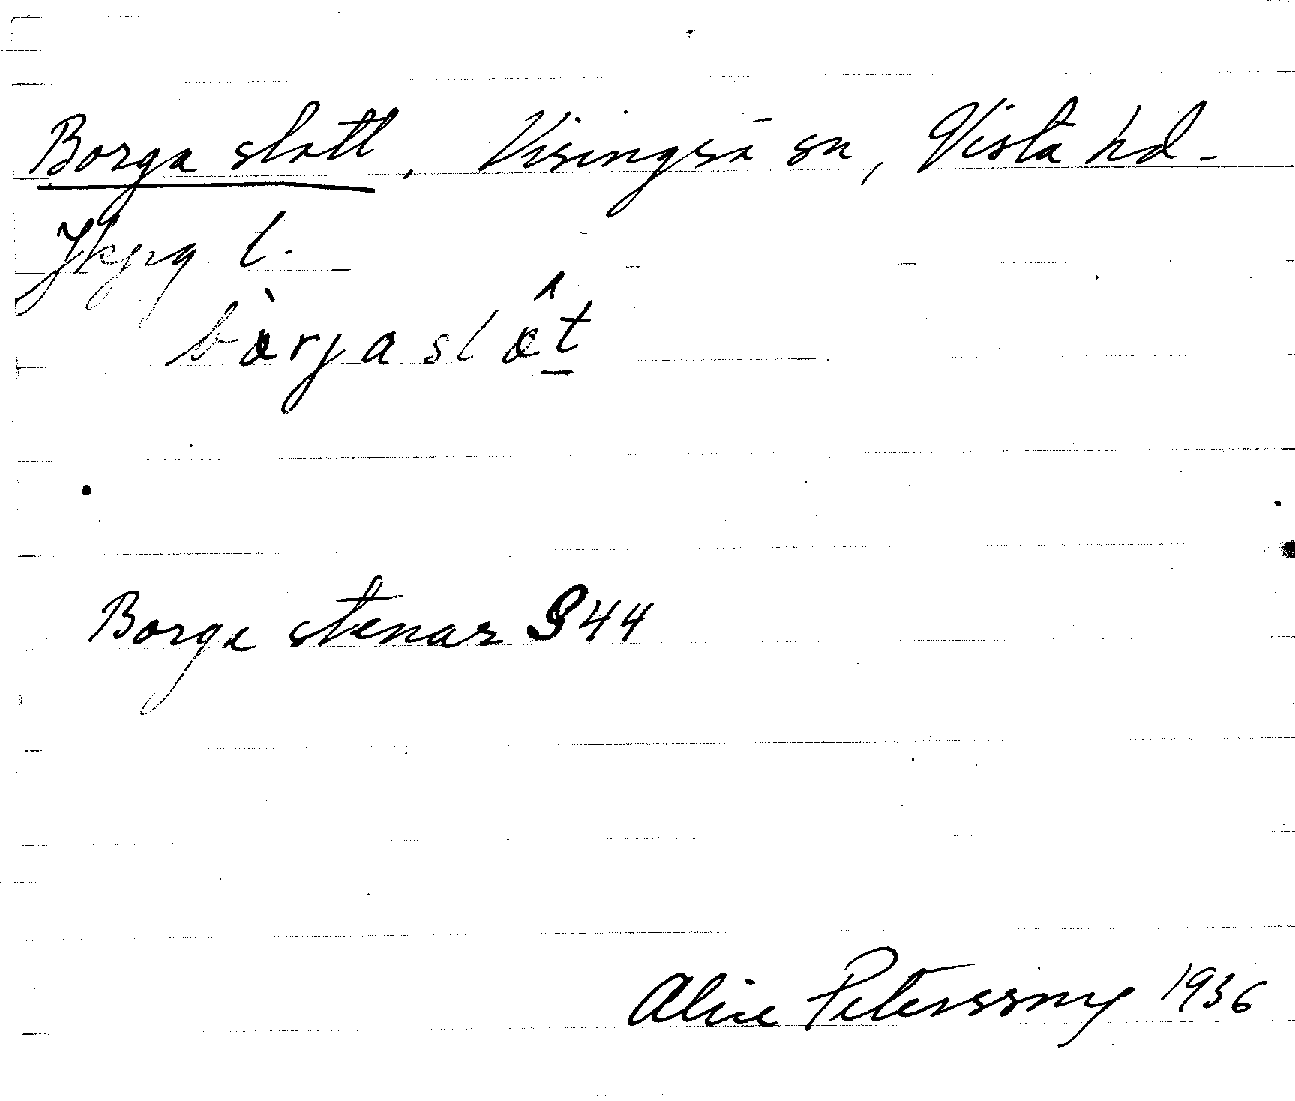 Borga slott, Visingsö sn, Vista hd.
Jkpg l.
bòrjaslôt
Borga stenar 344
Alice Petersson 1936